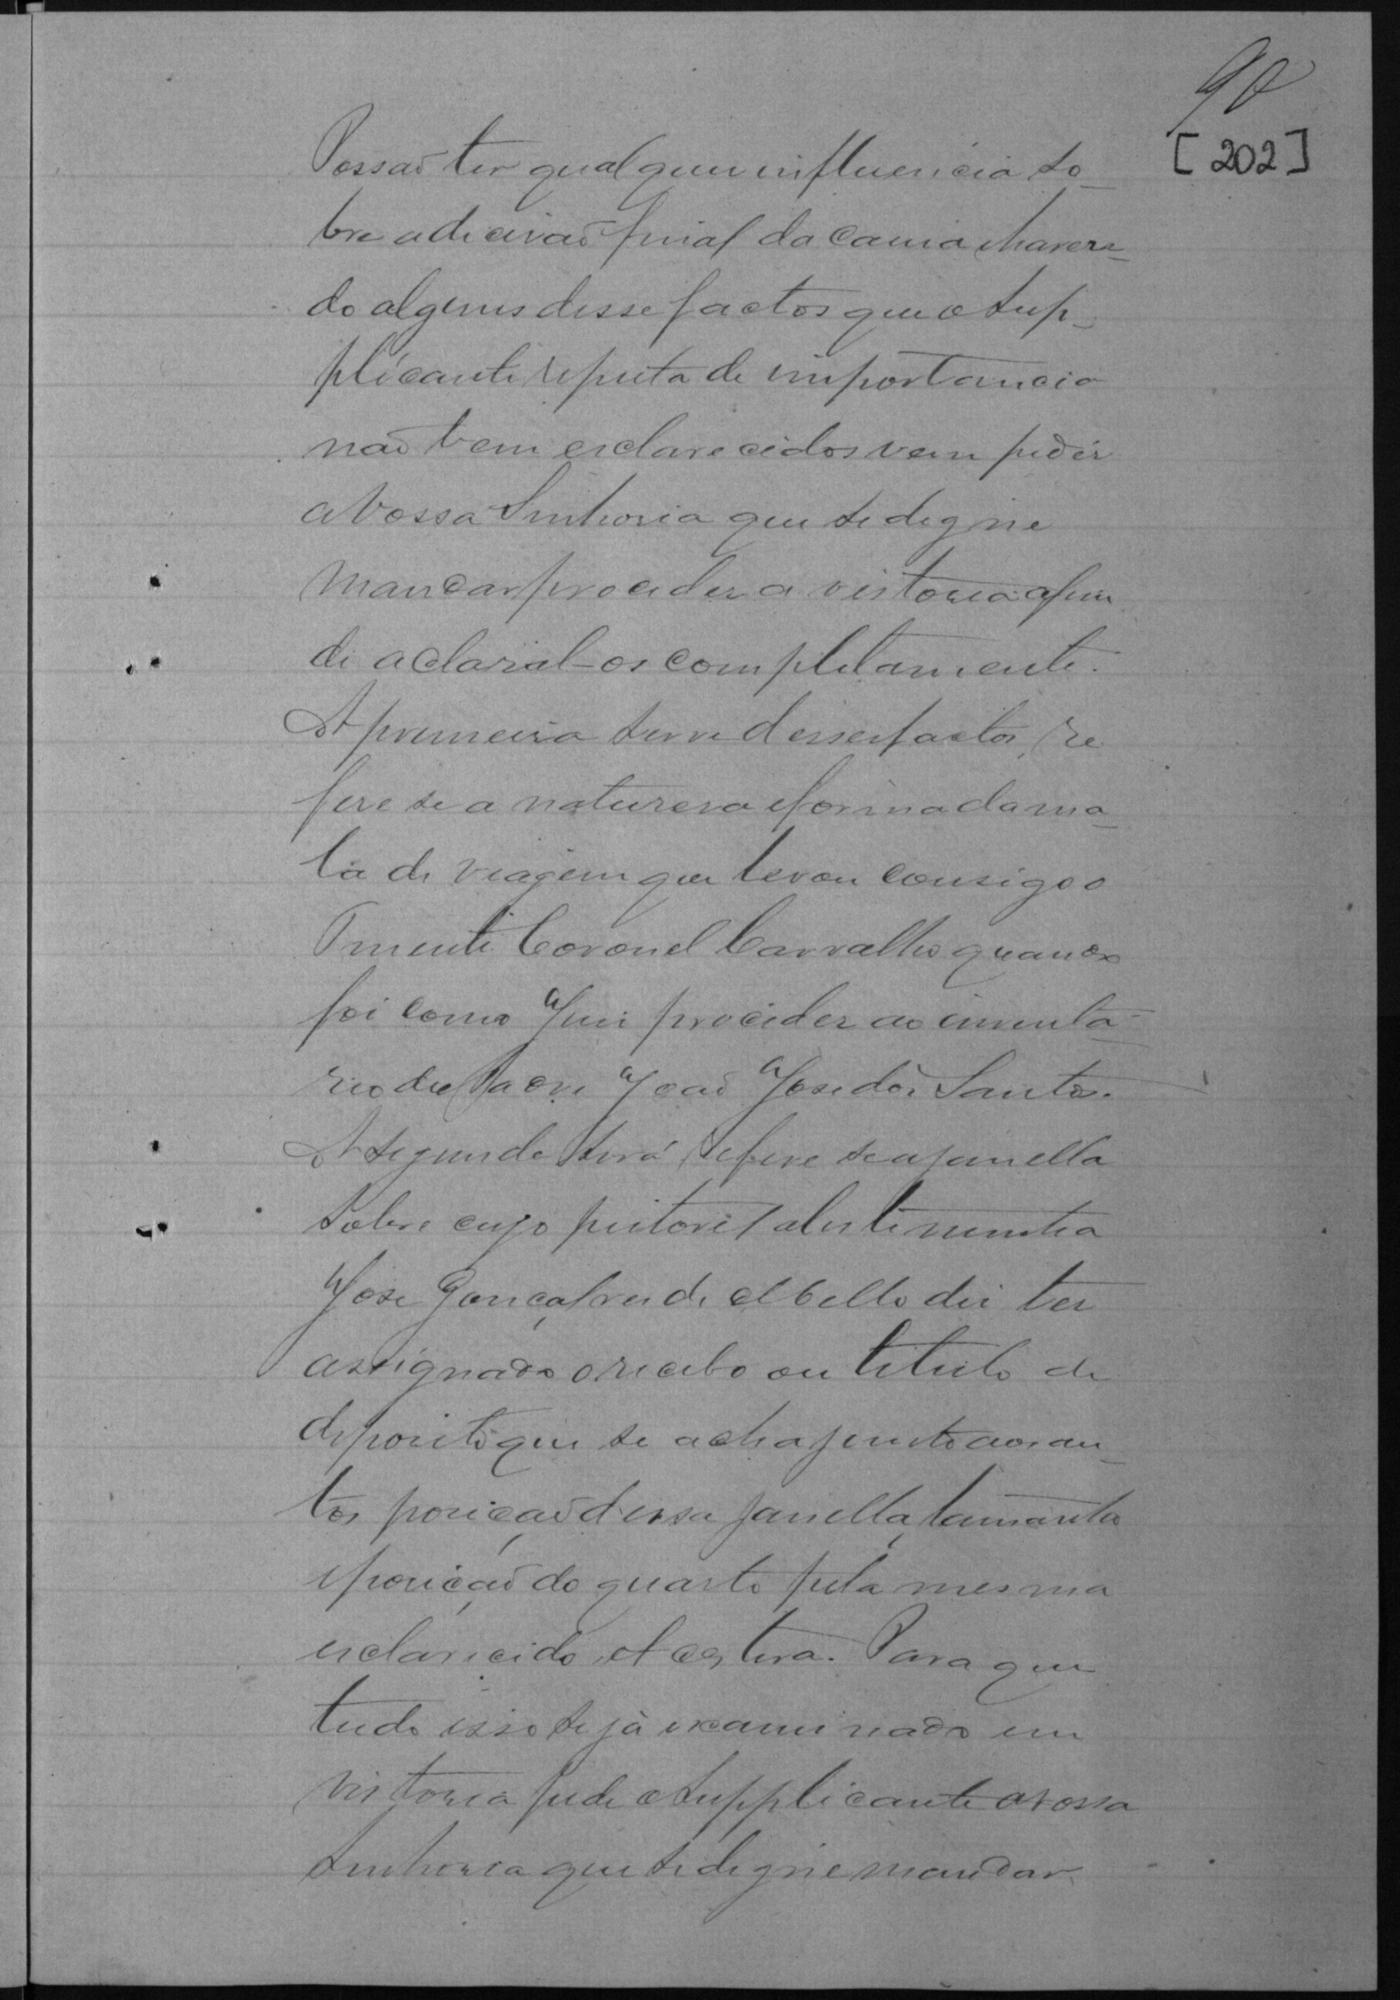 90
[202]
Possaõ ter qualquer influencia so-
bre a decisaõ final da causa e haven-
do alguns desse factos que o Sup-
plicante reputa de importancia
naõ bem esclarecidos vem pedir
a Vossa Senhoria que se digne
mandar proceder a vistoria afim
de aclaral-os completamente.
A primeira serie desses factos, re
fere se a naturesa e forma da ma-
la de viagem que levou consigo o
Tenente Coronel Carvalho quando
foi como Juis proceder ao inventa-
rio do Padre Joaõ Jose dos Santos.
A segunda será refere se a janella
sobre cujo peitoril a testimunha
Jose Gonçalves de Mello dis ter
assignado o recibo ou titulo de
deposito que se acha junto aos au-
tos posiçaõ dessa janella, tamanho
e posiçaõ do quarto pela mesma
esclarecido, et cetera. Para que
tudo isso seja examinado em
vistoria pede o Supplicante a vossa
Senhoria que se digne mandar